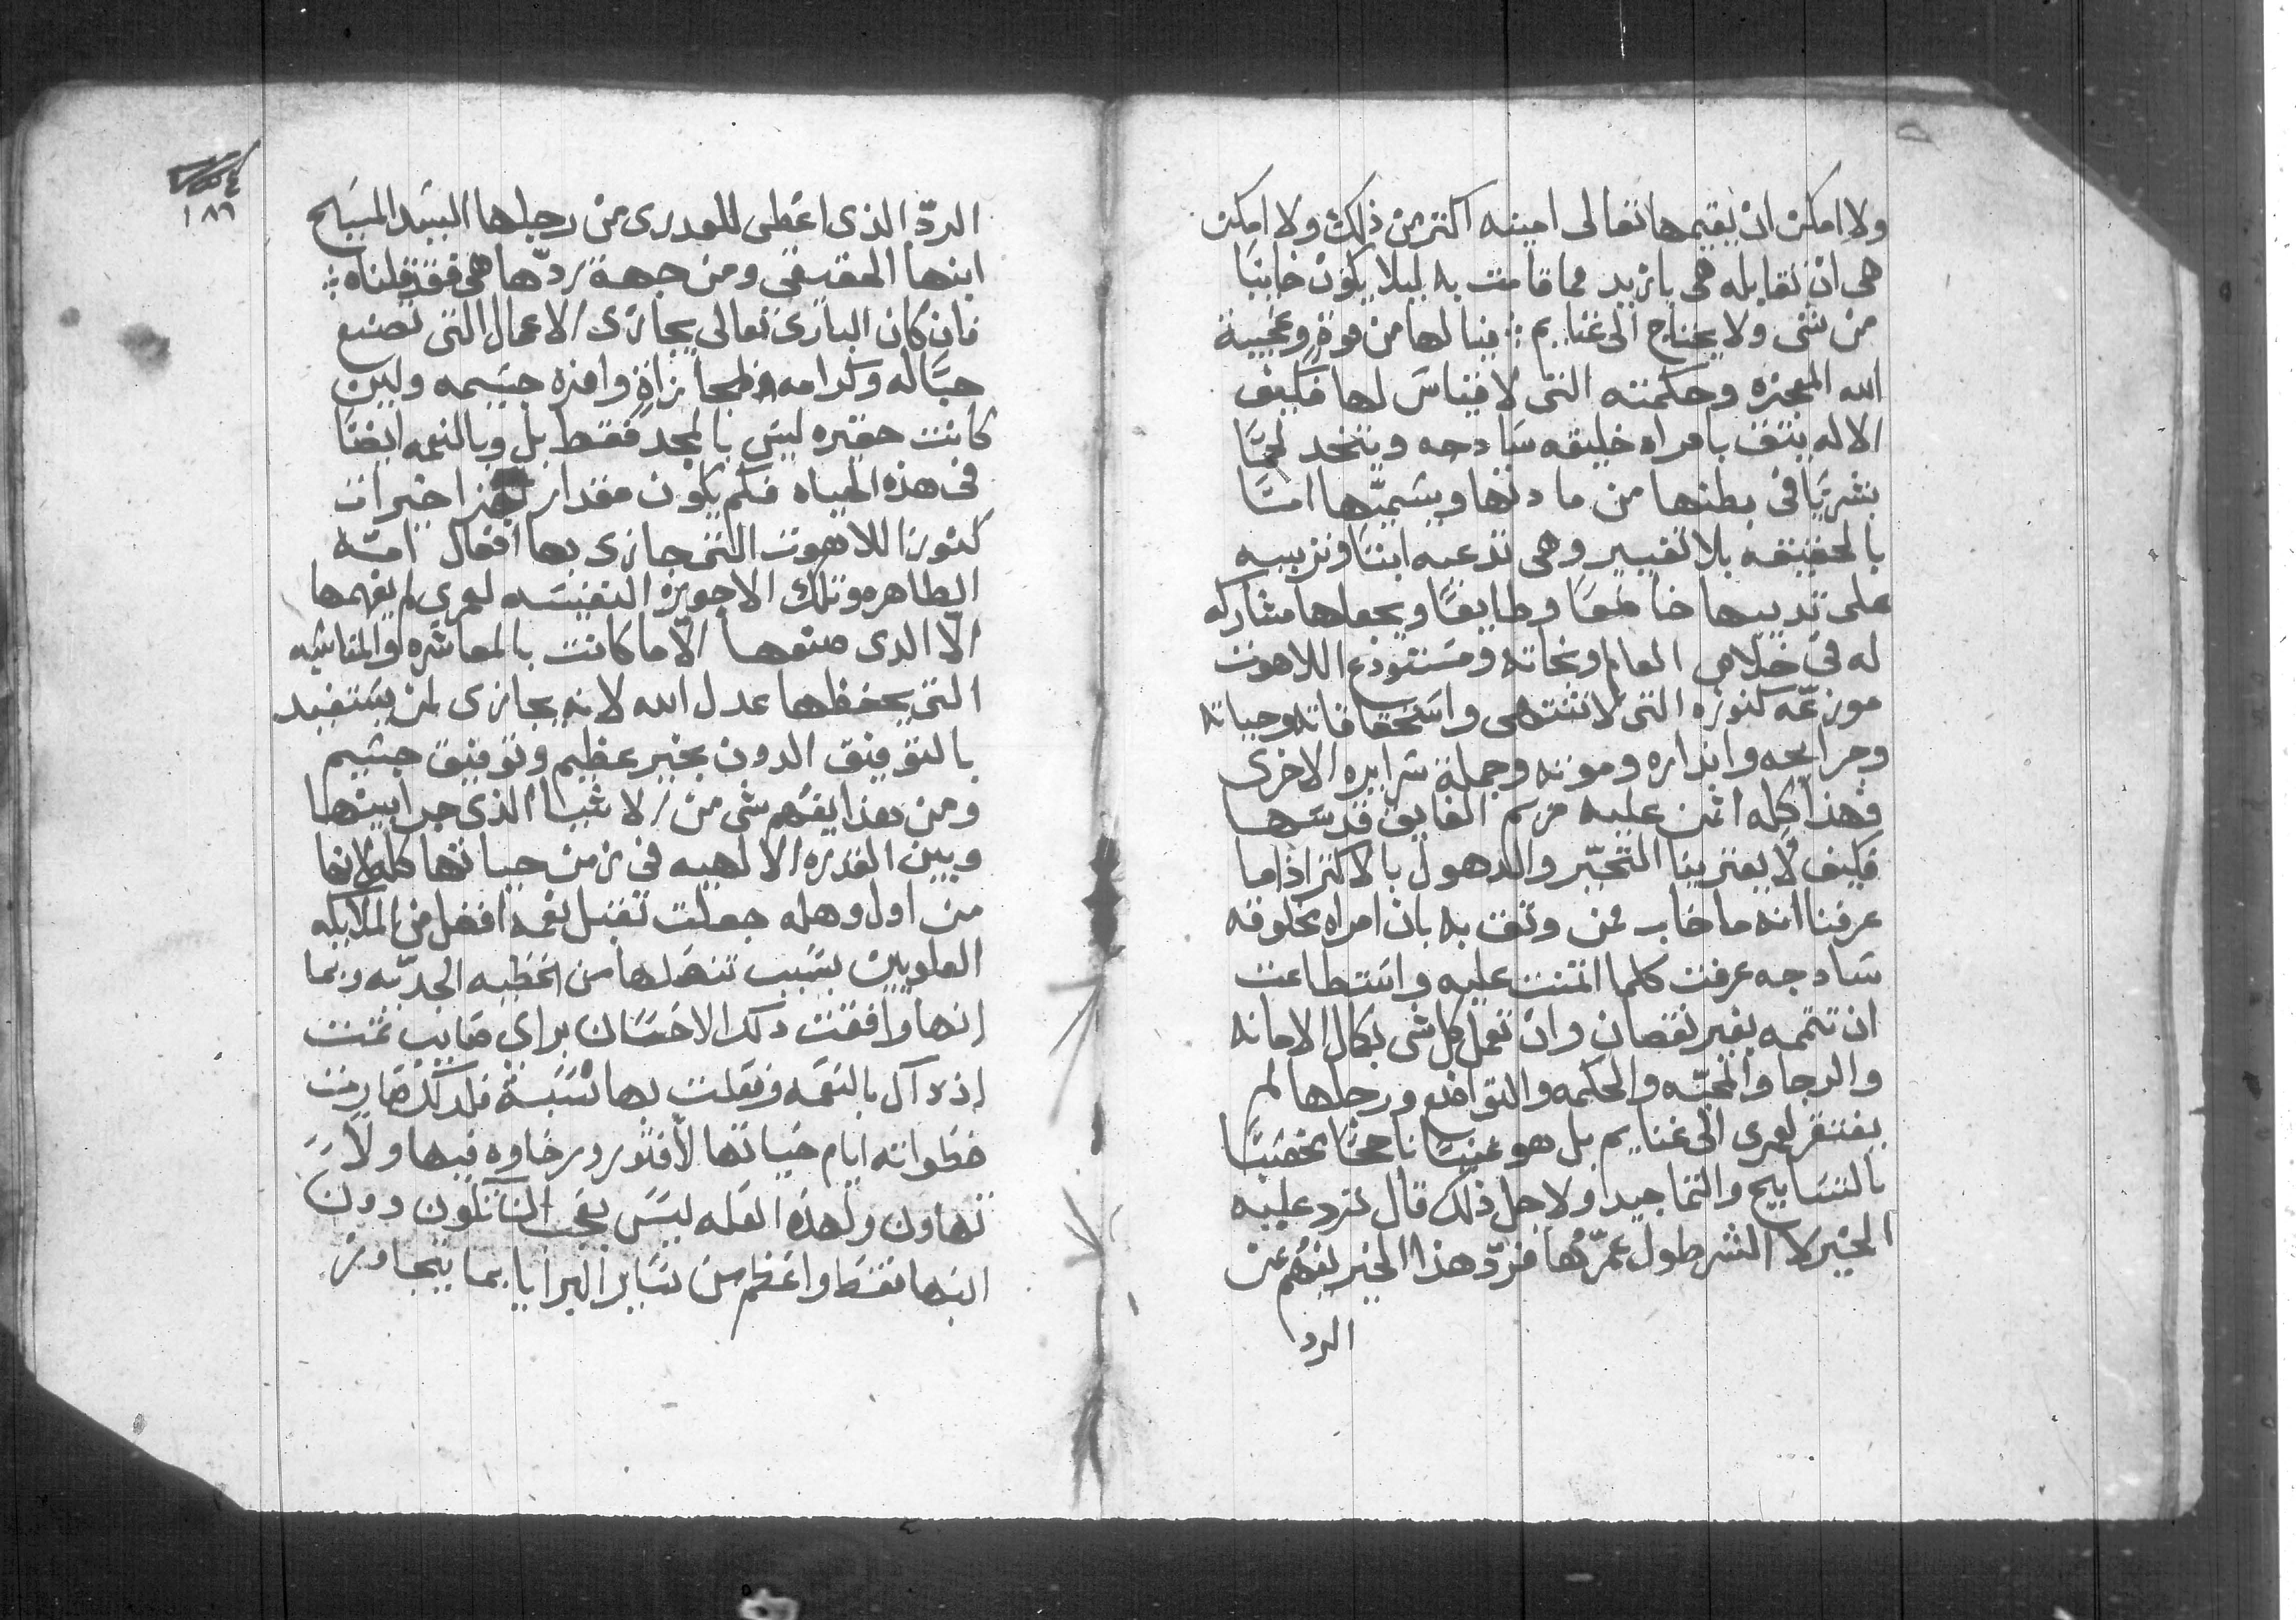 ولا امكن ان يقيمها تعالى امينه اكثر من ذلك ولا امكن
هى ان تقابله هى بازيد مما قامت به ليلا يكون خايبًا
من شى ولا يحتاج الى غنايم : فيا لها من قوة وعجيبة
الله المعجزه وحكمته التى لا قياس لها فكيف
الاله يثق بامراه خليقه سادجه ويتخد لحمًا
بشريًا فى بطنها من ما دمها ويسميّها امتًا
بالحقيقه بلا تغيير وهى تدعيه ابنًا وتربيه
على تدييها خاضعًا وطايعًا ويجعلها مشاركه
له فى خلاص العالم ونجاته ومستودع اللاهوت
موزعّه كنوزه التى لا تنتهى واستحقاقاته وحياته
وجرايحه وانداره وموته وجملة سرايره الاخرى
فهذا كله اتمن عليه مريم الفايق قدسها
فكيف لا يعترينا التحيّر والدهول بالاكتر اذا ما
عرفنا انه ما خاب ممن وثق به بان امراه مخلوقه
سادجه عرفت كلما اتمنت عليه واستطاعت
ان تتممه بغير نقصان وان تعمل كل شى بكمال الامانه
والرجا والمحبّه والحكمه والتواضع ورجلها لم
يفتقر لعمرى الى غنايم بل هو غنيًا ناجحًا مخصبًا
بالتسابيح والتماجيد ولاجل ذلك قال ترد عليه
الخير لا الشر طول عمرّها فردّ هذا الخير يفهم عن
الرد
١٨٦
الردّ الذى اعطى للعدرى من رجلها السيد المسيح
ابنها الحقيقى ومن جهة ردّها هى فقد قلناه :
فان كان البارى تعالى يجازى الاعمال التى تصنع
حبًا له وكرامه بمجازاةٍ وافره جسيمه ولين
كانت حقيره ليس بالمجد فقط بل وبالنعمه ايضًا
فى هذه الحياه فكم يكون مقدار خيرات
كنوز اللاهوت التى جازى بها افعال امّه
الطاهره وتلك الاجويزه النفيسه لعمرى لم يفهمها
الا الدى صنعها الا ما كانت بالمعاشره والمناسبه
التى يحفظها عدل الله لانه يجازى لمن يستفيد
بالتوفيق الدون بخير عظيم وتوفيق جسيم
ومن هذا يفهم شى من الاشيا الذى جرا بينها
وبين القدره الالهيه فى زمن حياتها كله لانها
من اول وهله جعلت تقبل نعمه افضل من الملايكه
العلويين بسبب تنصلها من الخطيه الجديّه وبما
انها وافقت دلك الاحسان براي صايب تمنت
اذ ذاك بالنعمه وفعلت بها نسبة فلدلك صارت
خطواته ايام حياتها لا فتور ورخاوه فيها ولا
تهاون ولهذه العله ليس بعجب ان تكون دون
ابنها فقط واعظم من ساير البرايا بما يتجاوز